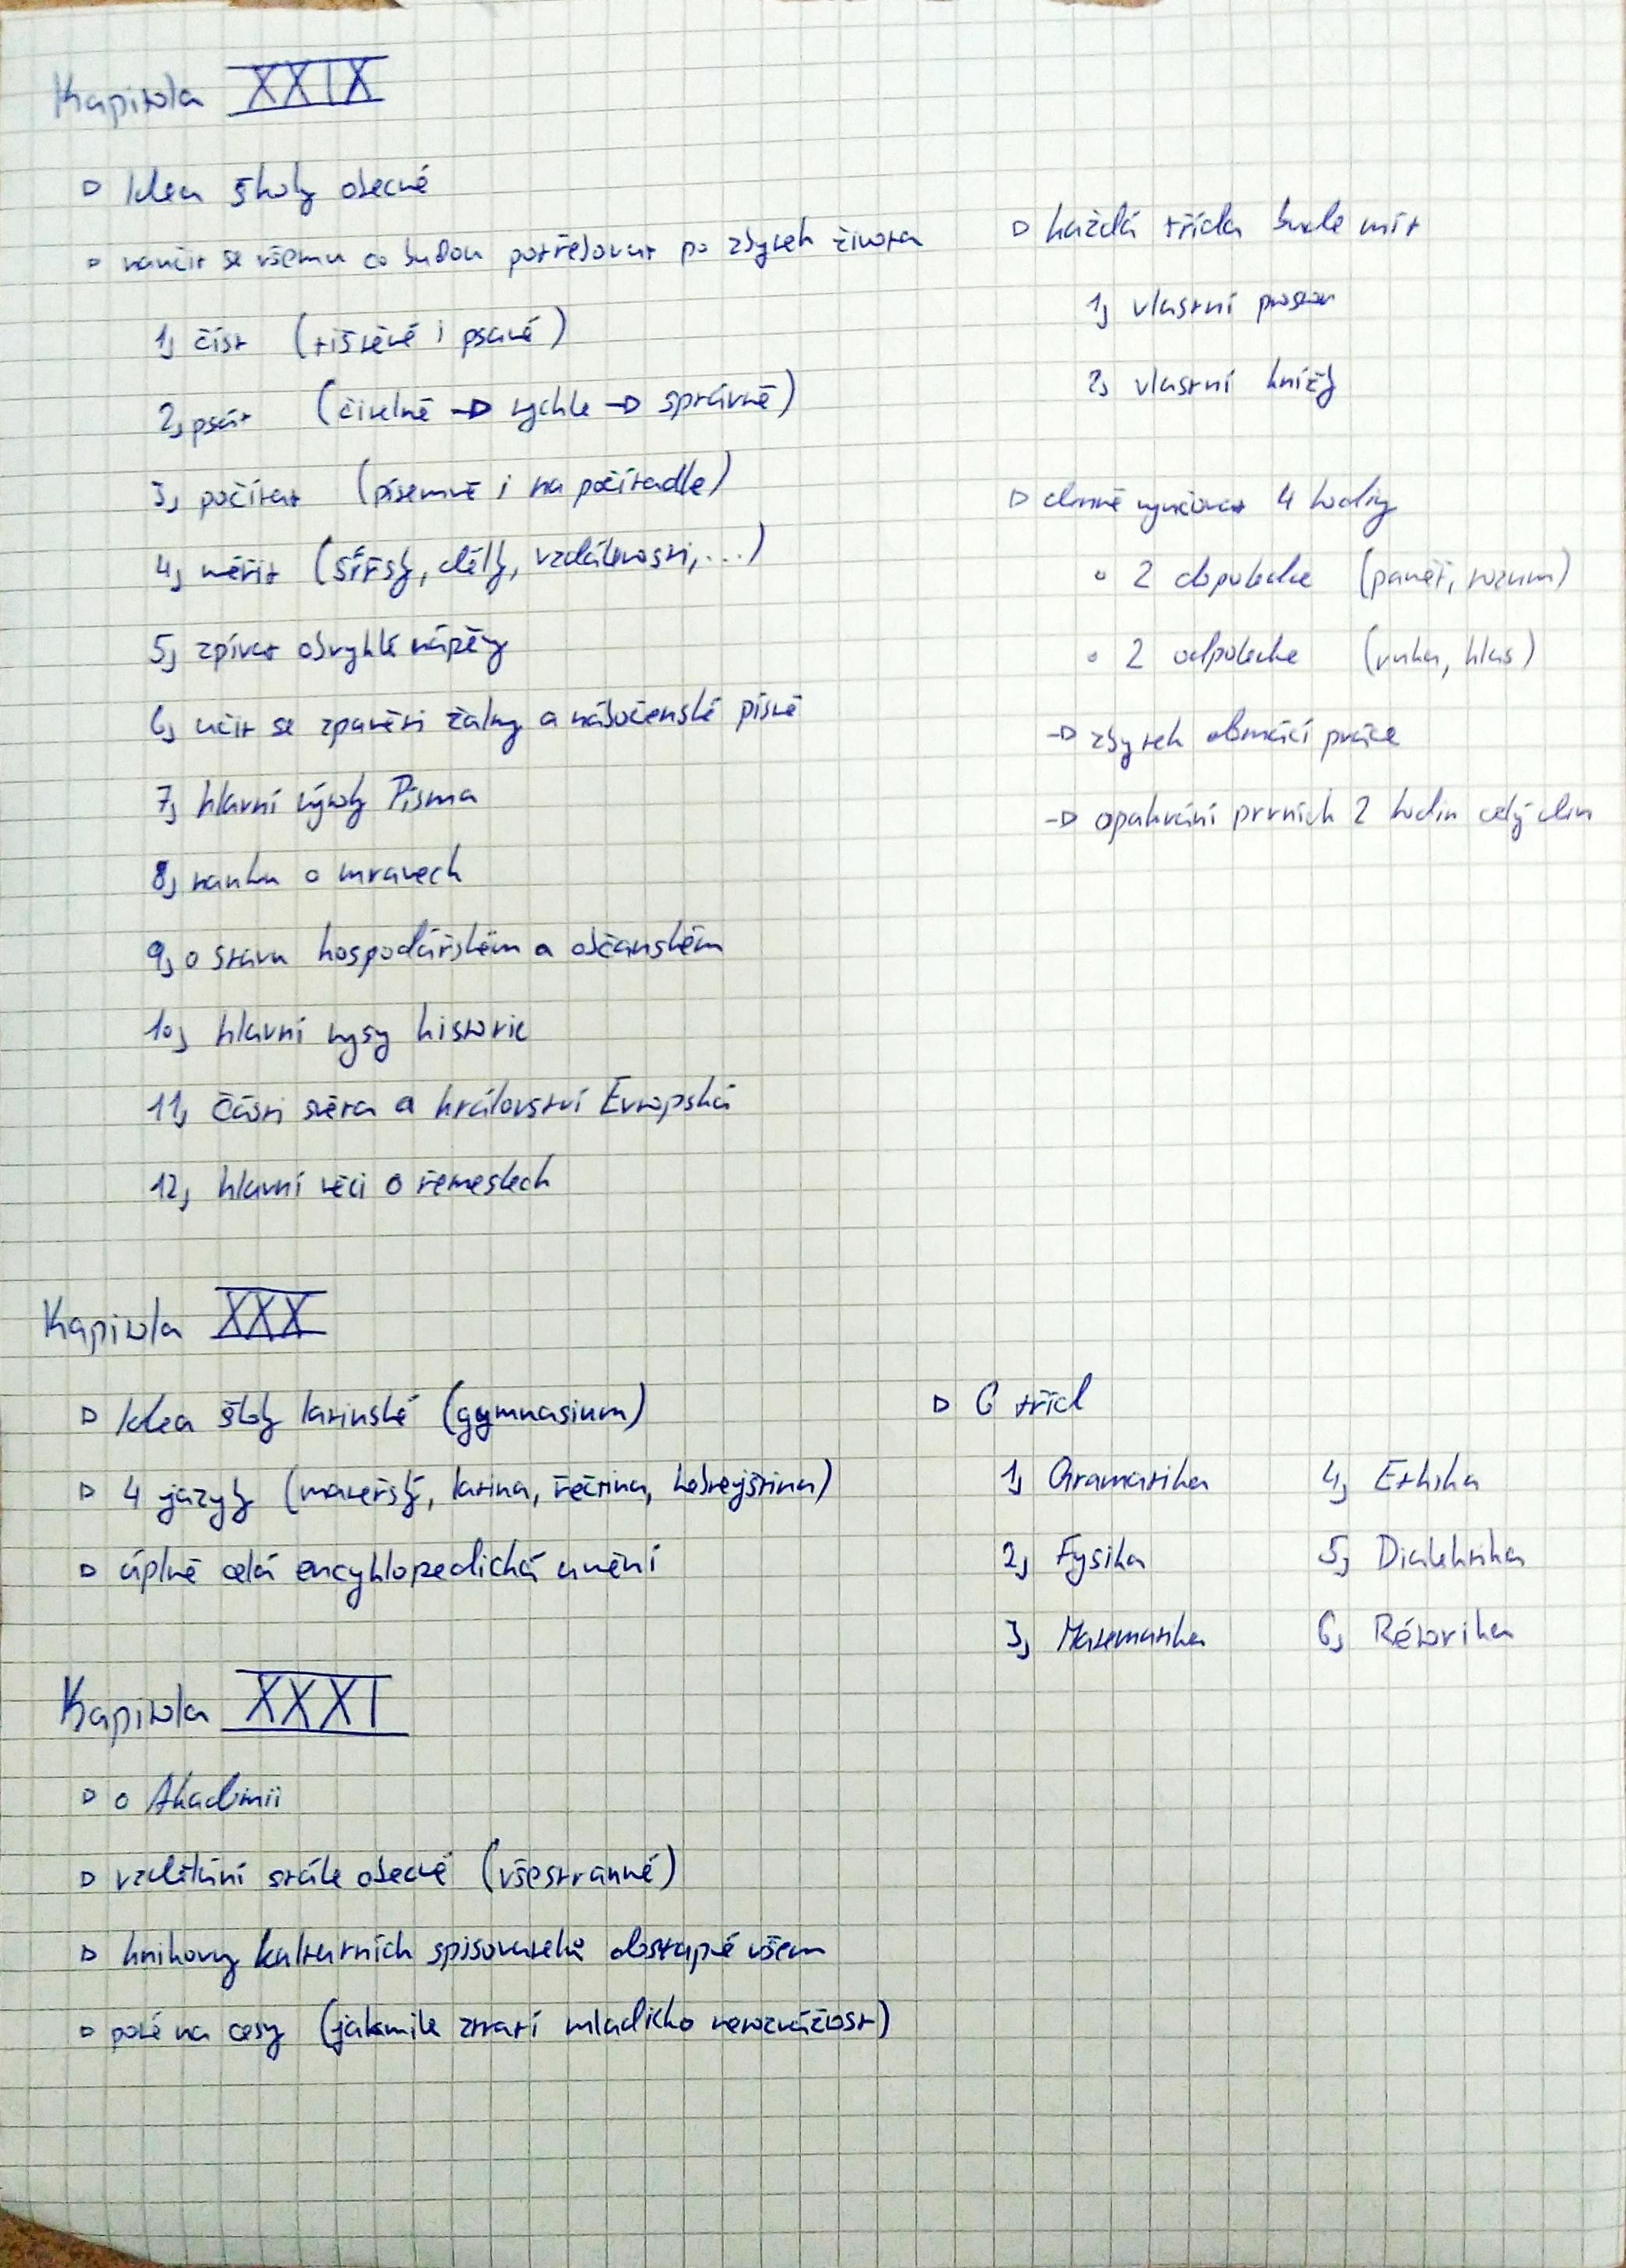 Kapitola XXIX
Idea školy obecné
naučit se všemu co budou potřebovat po zbytek života
1, číst (tištěné i psané)
2, psát (čitelně → rychle → správně)
3, počítat (písemně i na počítadle)
4, měřit (šířky, délky, vzdálenosti, ...)
5, zpívat obvyklé nápěvy
6, učit se zpaměti žalmy a náboženské písně
7, hlavní výroky Písma
8, nauku o mravech
9, o stavu hospodářském a občanském
10, hlavní rysy historie
11, části světa a království Evropská
12, hlavní věci o řemeslech
každá třída bude mít
1, vlastní prostor
2, vlastní knížky
denně vyučovat 4 hodiny
2 dopoledne (paměť, rozum)
2 odpoledne (ruka, hlas)
→ zbytek domácí práce
→ opakování prvních 2 hodin celý den
Kapitola XXX
Idea školy latinské (gymnasium)
4 jazyky (mateřský, latina, řečtina, hebrejština)
úplně celá encyklopedická umění
6 tříd
1, Gramatika
2, Fysika
3, Matematika
4, Ethika
5, Dialektika
6, Rétorika
Kapitola XXXI
o Akademii
vzdělání stále obecné (všestranné)
knihovny kulturních spisovatelů dostupné všem
poté na cesty (jakmile ztratí mladicko nerozvážnost)